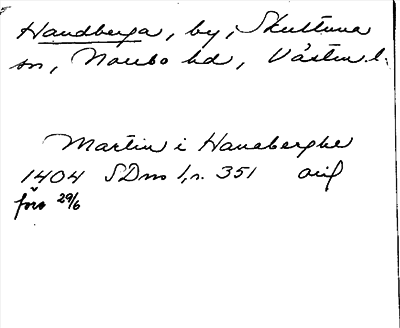 Handberga, by, Skultuna
sn, Norrbo hd, Västm. l.
Martin i Hanaberghe
1404 SDns 1, s. 351 avig
förs 29/6